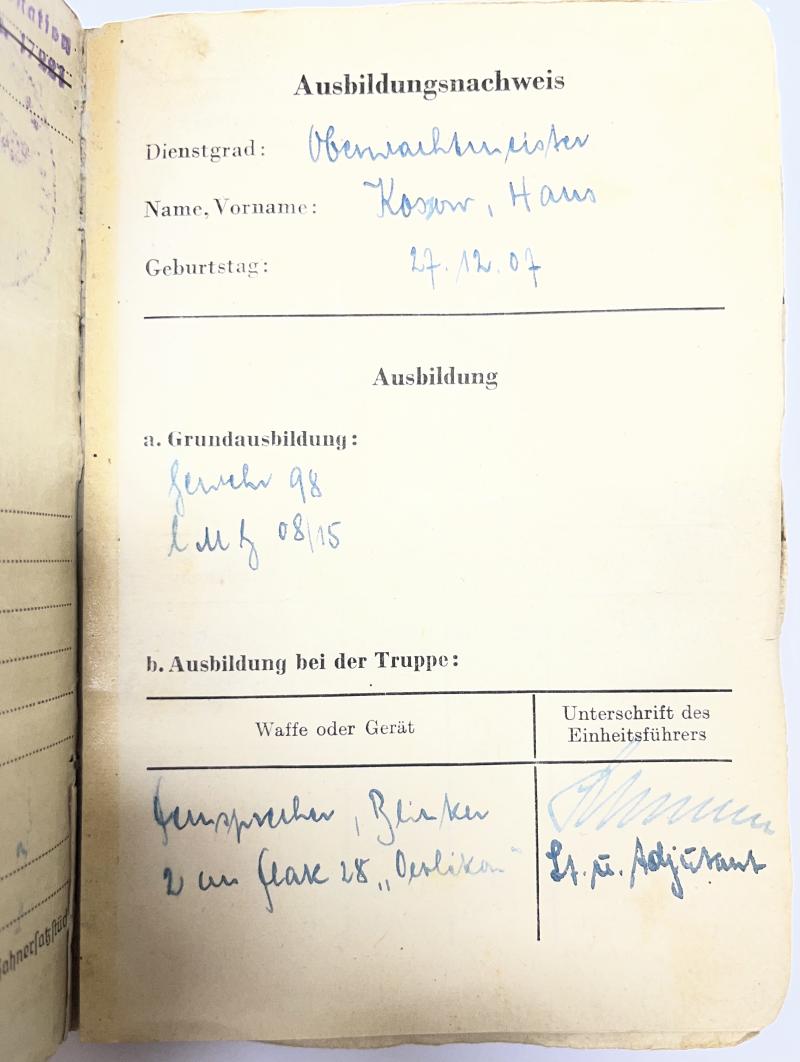 Ausbildungsnachweis
Dienstgrad: Oberwachtmeister
Name, Vorname: Kosow, Hans
Geburtstag: 27.12.07
Ausbildung
a. Grundausbildung:
Gewehr 98
l M G 08/15
b. Ausbildung bei der Truppe:
Waffe oder Gerät
Unterschrift des
Einheitsführers
Fernsprecher, Blinker
2 cm Flak 28 „Oerlikon“
Lt. u. Adjutant